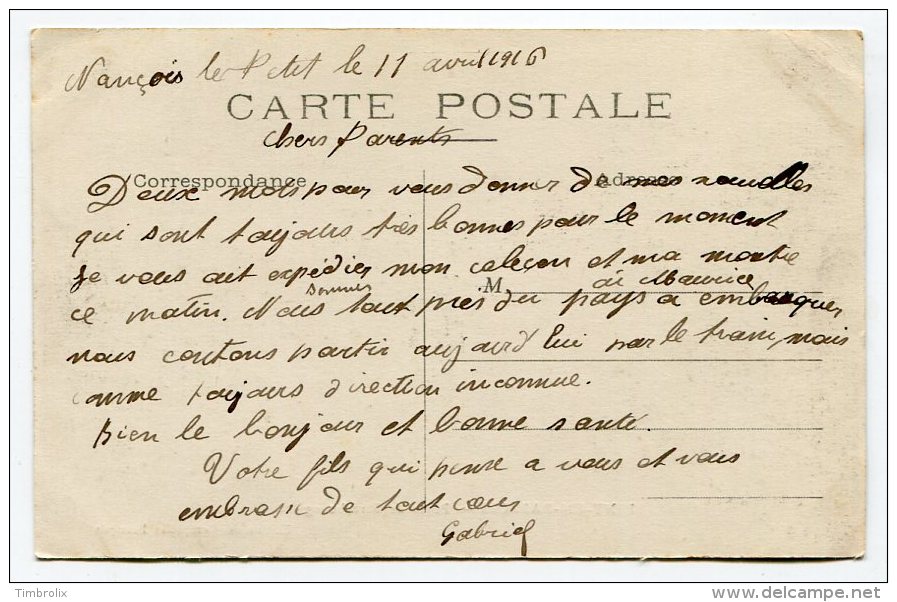 Nançois le Petit le 11 avril 1916
CARTE POSTALE
Chers Parents
Correspondance
Deux mots pour vous donner de mes nouvelles
qui sont toujours très bonnes pour le moment
Je vous ait expédier mon caleçon et ma montre
M
ce matin. Nous sommes tout pres du pays a Maurice embarquer
nous contons partir aujourd hui par le train, mais
comme toujours direction inconnue.
Bien le bonjour et bonne santé.
Votre fils qui pense a vous et vous
embrasse de tout cœur
Gabriel
Timbrolix
www.delcampe.net